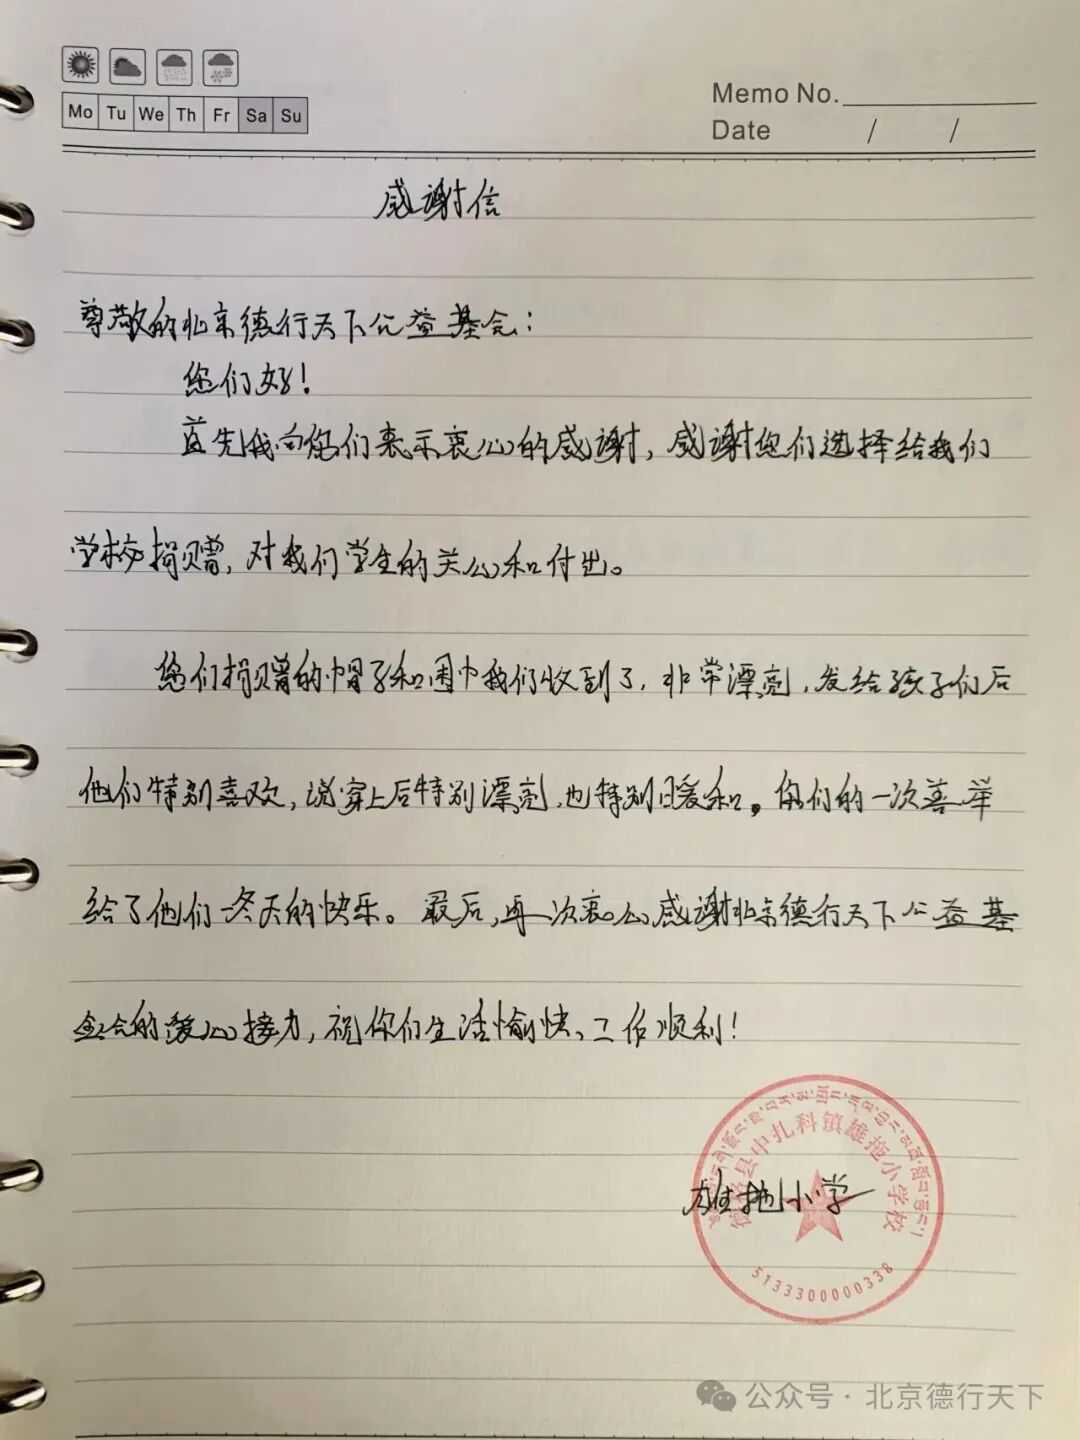 Mo Tu We Th Fr Sa Su
Memo No.
Date / /
感谢信
尊敬的北京德行天下公益基会：
您们好！
首先我向您们表示衷心的感谢，感谢您们选择给我们
学校捐赠，对我们学生的关心和付出。
您们捐赠的帽子和围巾我们收到了，非常漂亮，发给孩子们后
他们特别喜欢，说穿上后特别漂亮，也特别暖和。你们的一次善举
给了他们一冬天的快乐。最后，再次衷心感谢北京德行天下公益基
金会的爱心接力，祝你们生活愉快、工作顺利！
雄拖小学
德格县中扎科镇雄拖小学校
5133300000338
公众号·北京德行天下